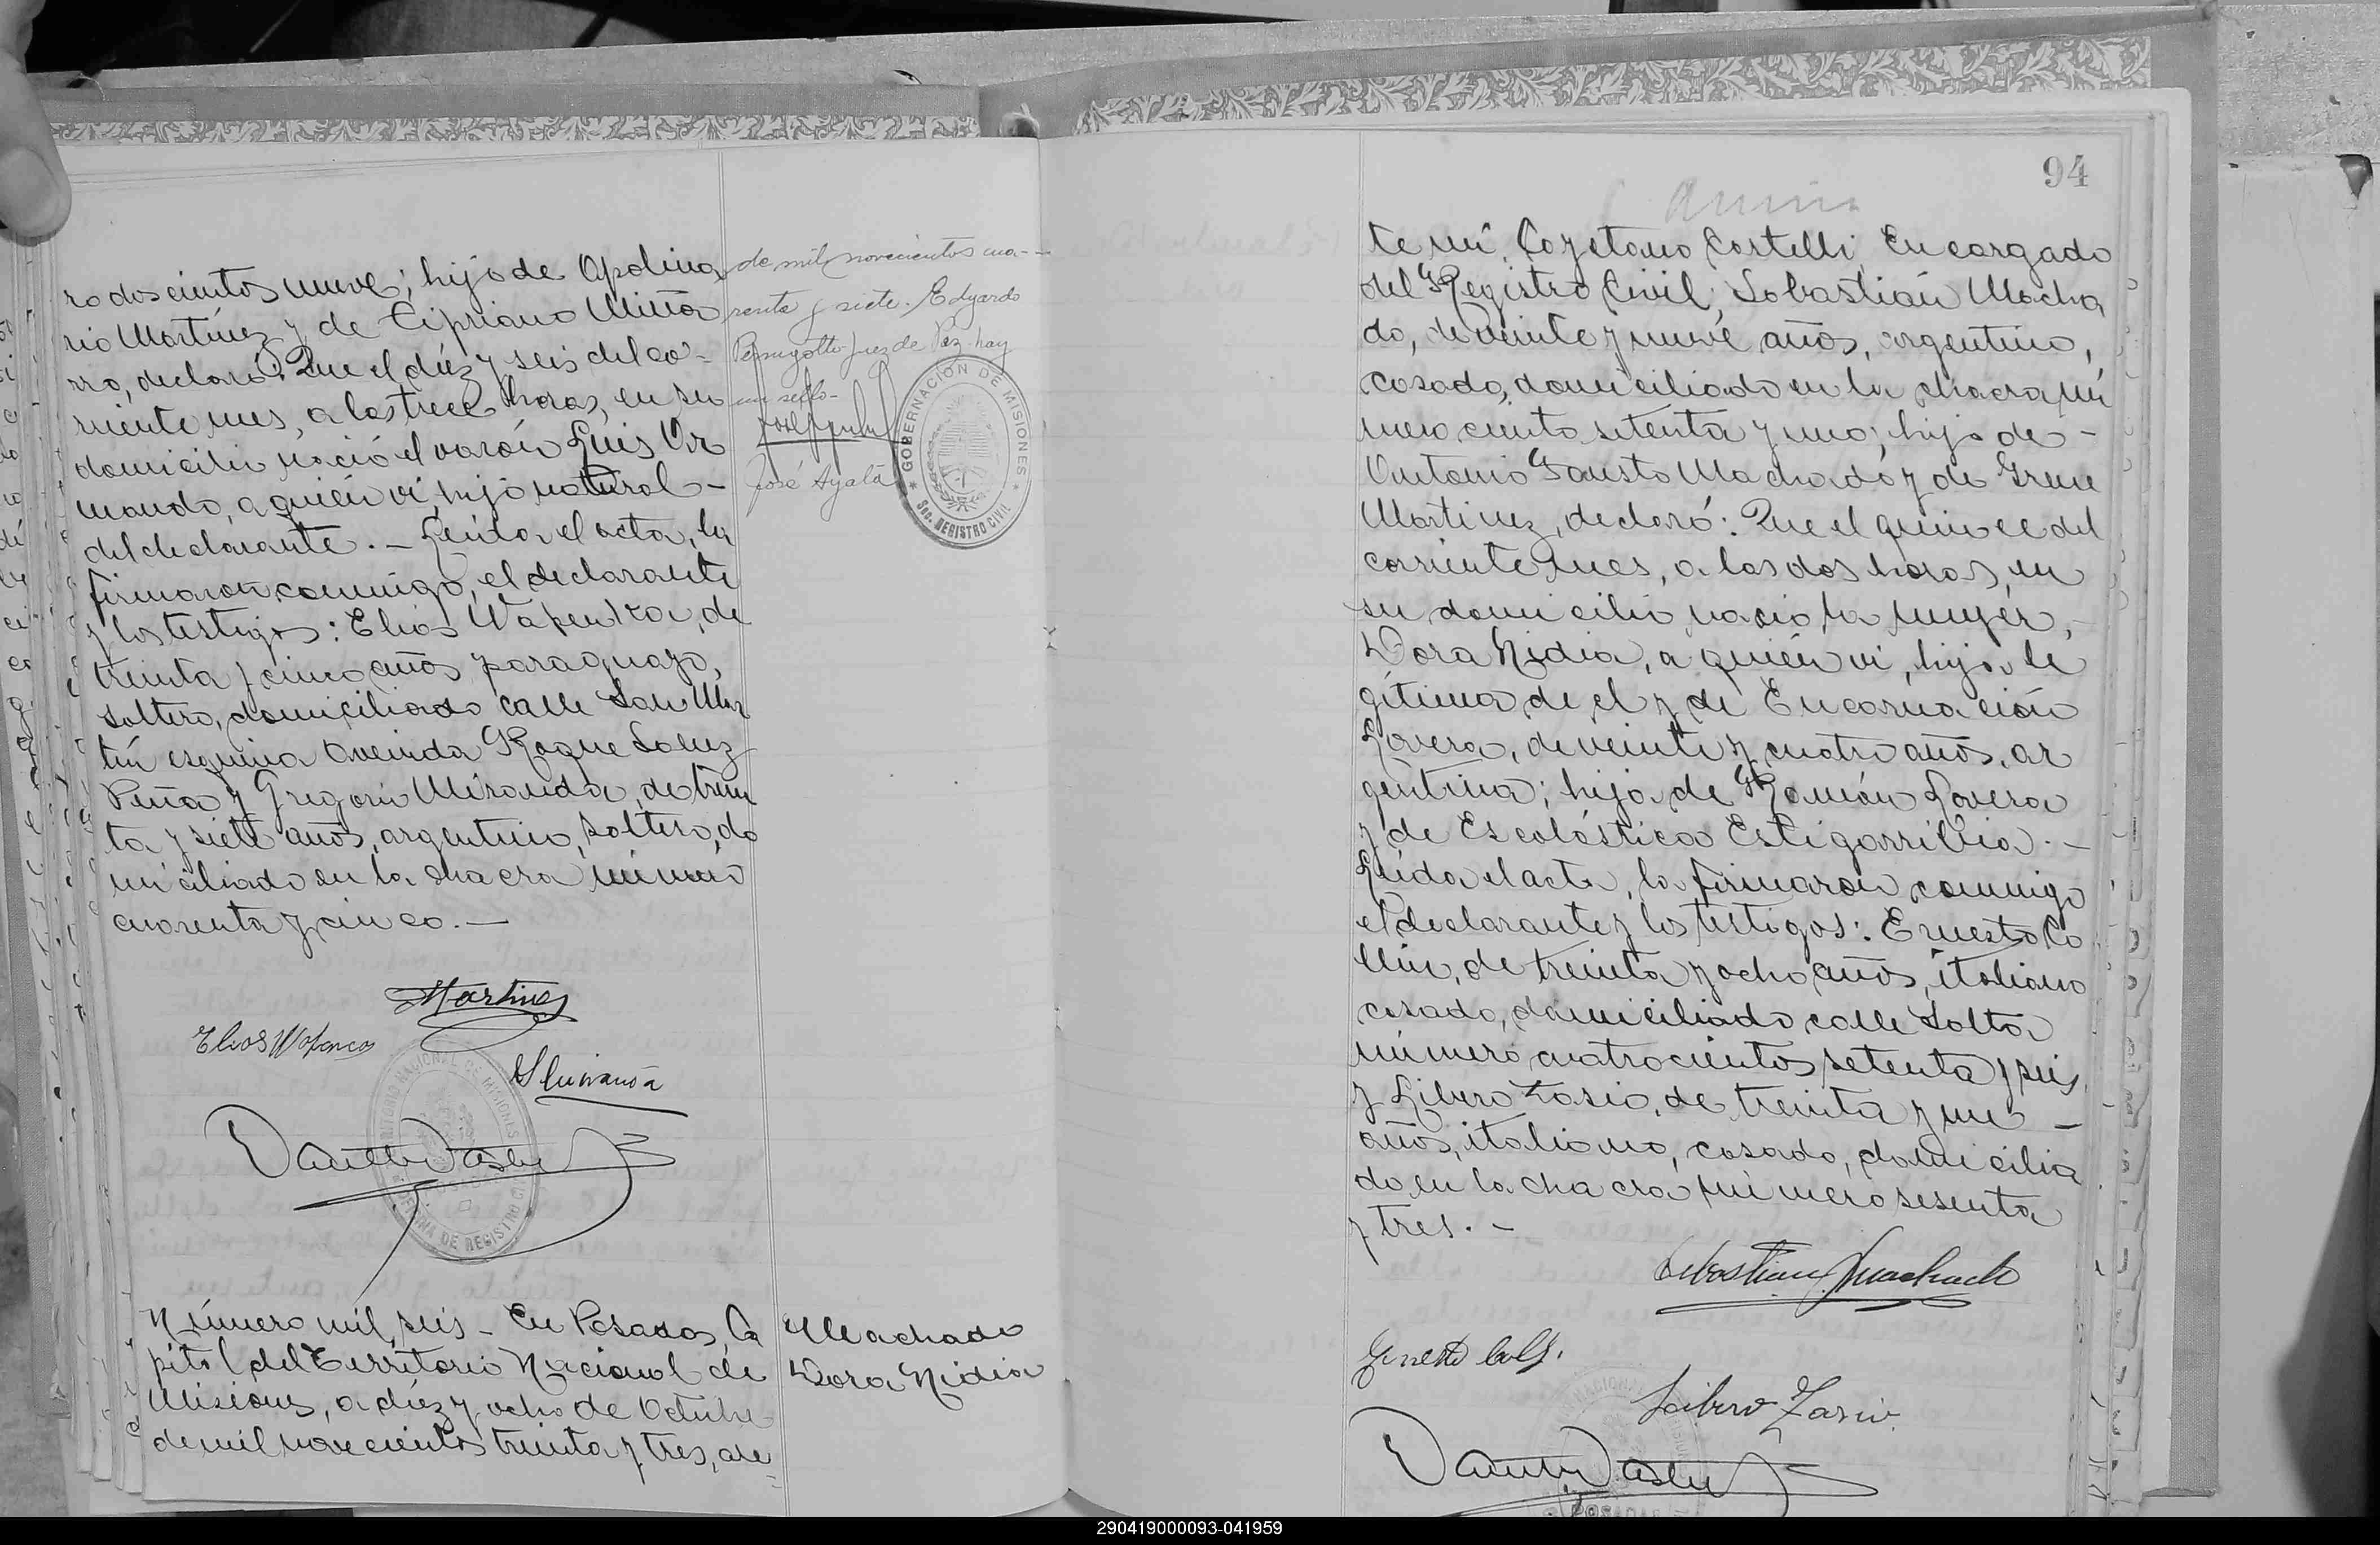 ro doscientos nueve; hijo de Apolina
rio Martínez y de Cipriana Miño
rro, declaró: Que el diéz y seis del co-
rriente mes, a las trece horas, en su
domicilio nació el varón Luis Or
mando, a quién vi, hijo natural-
del declarante.- Leída el acta, la
firmaron conmigo, el declarante
y los testigos: Elias Wapenka, de
treinta y cinco años, paraguayo,
soltero, domiciliado calle San Mar
tín esquina Avenida Roque Saenz
Peña y Gregorio Miranda, de trein
ta y siete años, argentino, soltero, do
miciliado en la chacra número
cuarenta y cinco.-
de mil novecientos cua-
renta y siete. Edgardo
Juez de Paz-hay
un sello-
José Ayala
GOBERNACIÓN DE MISIONES
SEC. REGISTRO CIVIL
Martinez
Elias
Miranda
TERRITORIO NACIONAL DE MISIONES
OFICINA DE REGISTRO CIVIL
Número mil seis- En Posadas, Ca
pital del Territorio Nacional de
Misiones, a diéz y ocho de Octubre
de mil novecientos treinta y tres, an-
Machado
Dora Nidia
94
te mí, Cayetano Castelli, Encargado
del Registro Civil, Sebastián Macha
do, de veinte y nueve años, argentino,
casado, domiciliado en la chacra nú
mero ciento setenta y uno; hijo de-
Antonio Fausto Machado y de Irene
Martinez, declaró: Que el quince del
corriente mes, a las dos horas, en
su domicilio nació la mujer,
Dora Nidia, a quién vi, hija le
gítima de el y de Encarnación
Lovera, de veinte y cuatro años, ar
gentina; hija de Román Lovera
y de Escolástica Estigarribia.-
Leída el acta, la firmaron conmigo
el declarante y los testigos: Ernesto Co
llin, de treinta y ocho años, italiano
casado, domiciliado calle Salta
número cuatrocientos setenta y seis
y Libero Zasio, de treinta y un -
años, italiano, casado, domicilia
do en la chacra número sesenta
y tres.-
Sebastian Machado
Ernesto
Libero Zasio
POSADAS
290419000093-041959